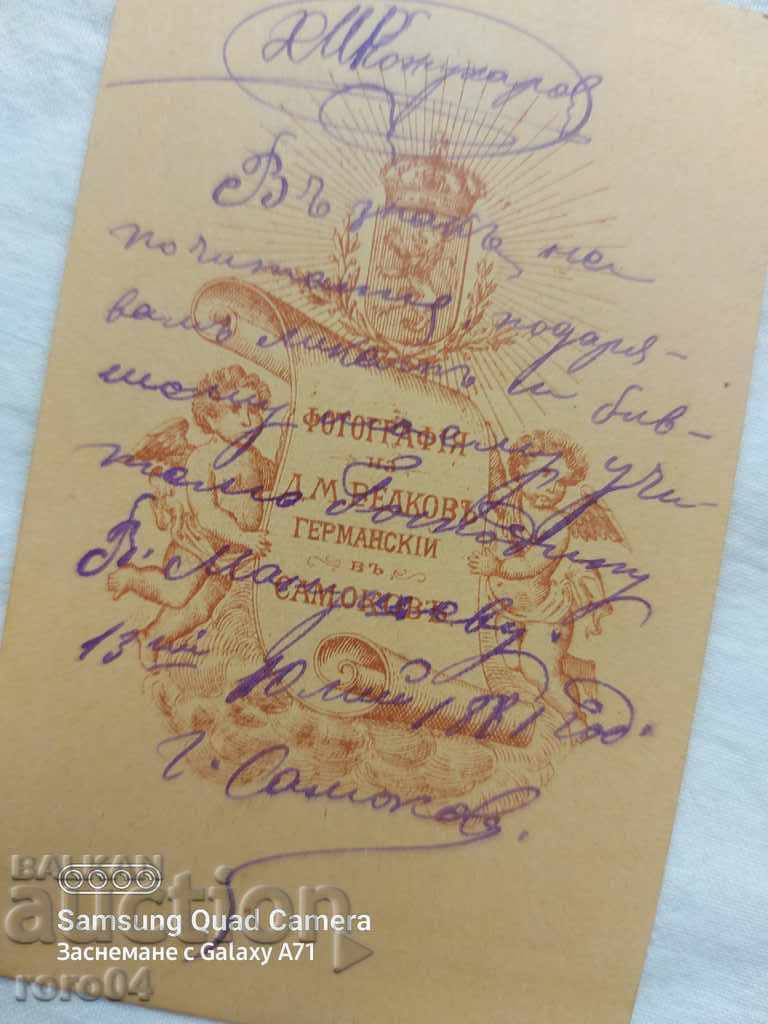 ХМКожухаров
Въ знакъ на
почитание, подаря-
вамъ ликътъ си бив-
шему моему учи-
телю Господину
В. Манчеву.
13ий Юлий 1881 год.
г. Самоковъ.
ФОТОГРАФІЯ
на
Д. М. ВЕЛКОВЪ
ГЕРМАНСКІЙ
въ
САМОКОВЪ
BALKAN
auction
Samsung Quad Camera
Заснемане с Galaxy A71
roro04